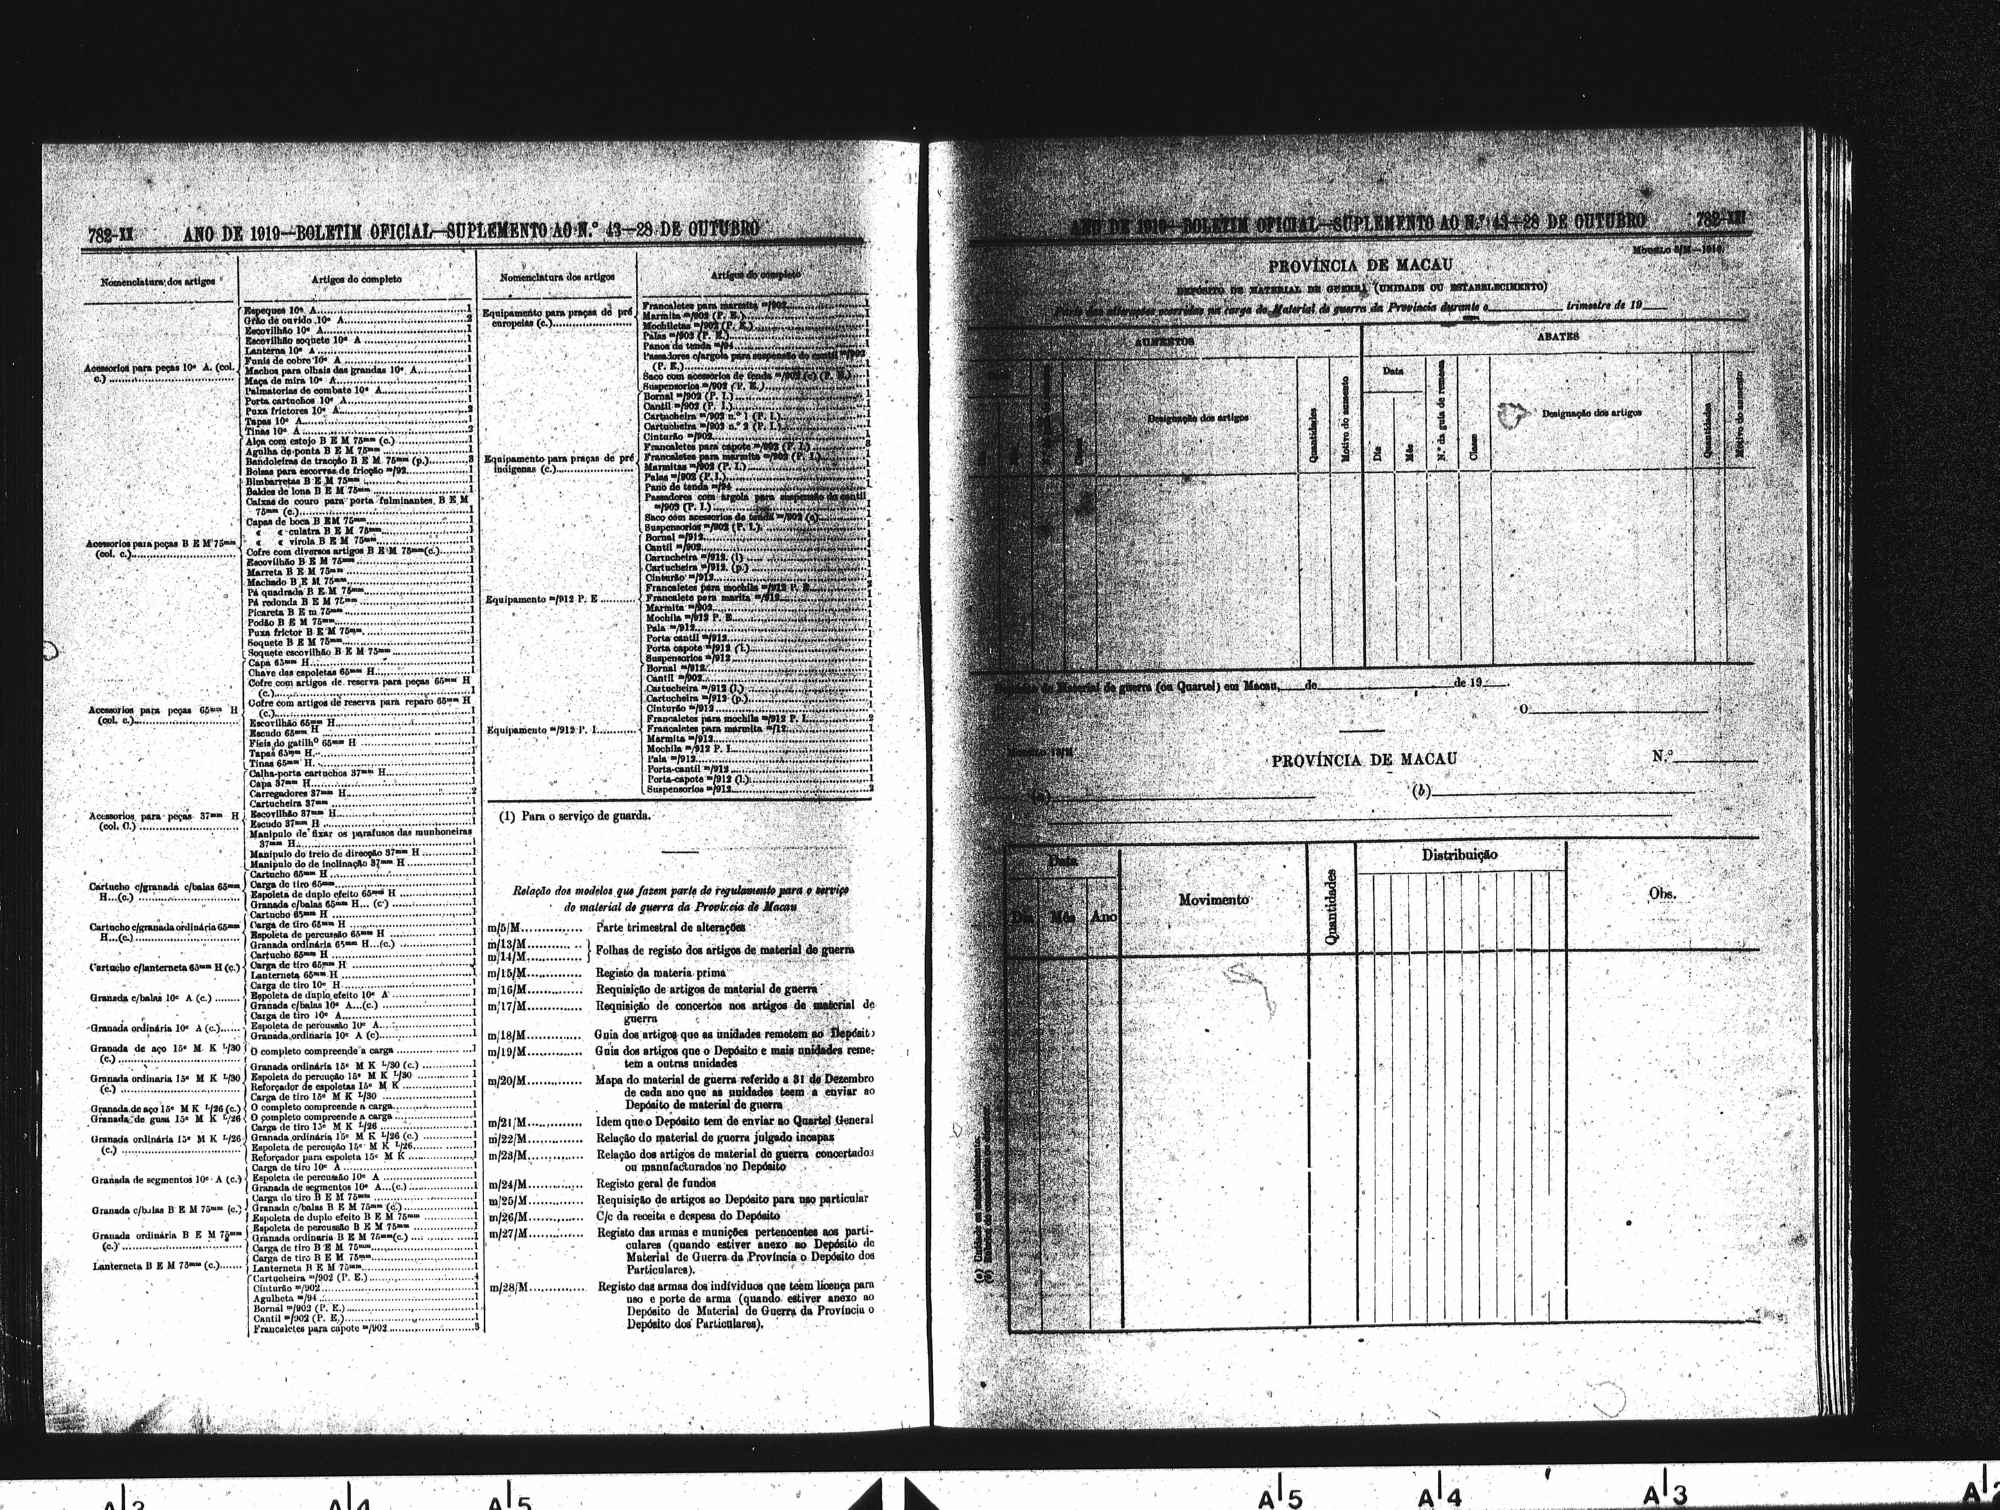 782-XX ANO DE 1919—BOLETIM OFICIAL—SUPLEMENTO AO N.º 43—28 DE OUTUBRO
Nomenclatura dos artigos
Artigos do completo
Acessorios para peças 10ᶜ A. (col. c.)
Espeques 10ᶜ A 1
Grão de ouvido 10ᶜ A 2
Escovilhão 10ᶜ A 1
Escovilhão soquete 10ᶜ A 1
Lanterna 10ᶜ A 1
Funis de cobre 10ᶜ A 1
Machos para olhais das grandas 10ᶜ A 1
Maça de mira 10ᶜ A 1
Palmatorias de combate 10ᶜ A 1
Porta cartuchos 10ᶜ A 1
Puxa frictores 10ᶜ A
Tapas 10ᶜ A
Tinas 10ᶜ A
Acessorios para peças B E M 75ᵐᵐ (col. c.)
Alça com estojo B E M 75ᵐᵐ (c.) 1
Agulha de ponta B E M 75ᵐᵐ 1
Bandoleiras de tracção B E M 75ᵐᵐ (p.) 3
Bolsas para escorvas de fricção ᵐ/92 1
Bimbarretas B E M 75ᵐᵐ 1
Baldes de lona B E M 75ᵐᵐ 1
Caixas de couro para porta fulminantes B E M
75ᵐᵐ (c.) 1
Capas de boca B E M 75ᵐᵐ 1
« « culatra B E M 75ᵐᵐ 1
« « virola B E M 75ᵐᵐ 1
Cofre com diversos artigos B E M 75ᵐᵐ (c.) 1
Escovilhão B E M 75ᵐᵐ 1
Marreta B E M 75ᵐᵐ 1
Machado B E M 75ᵐᵐ 1
Pá quadrada B E M 75ᵐᵐ 1
Pá redonda B E M 75ᵐᵐ 1
Picareta B E m 75ᵐᵐ 1
Podão B E M 75ᵐᵐ 1
Puxa frictor B E M 75ᵐᵐ 1
Soquete B E M 75ᵐᵐ 1
Soquete escovilhão B E M 75ᵐᵐ 1
Acessorios para peças 65ᵐᵐ H (col. c.)
Capa 65ᵐᵐ H 1
Chave das espoletas 65ᵐᵐ H 1
Cofre com artigos de reserva para peças 65ᵐᵐ H
(c.) 1
Cofre com artigos de reserva para reparo 65ᵐᵐ H
(c.) 1
Escovilhão 65ᵐᵐ H 1
Escudo 65ᵐᵐ H 1
Fieis do gatilhº 65ᵐᵐ H 1
Tapas 65ᵐᵐ H 1
Tinas 65ᵐᵐ H 1
Acessorios para peças 37ᵐᵐ H (col. C.)
Calha-porta cartuchos 37ᵐᵐ H 1
Capa 37ᵐᵐ H 1
Carregadores 37ᵐᵐ H 2
Cartucheira 37ᵐᵐ 1
Escovilhão 37ᵐᵐ H 1
Escudo 37ᵐᵐ H 1
Manipulo de fixar os parafusos das munhoneiras
37ᵐᵐ H 1
Manipulo do freio de direcção 37ᵐᵐ H 1
Manipulo do de inclinação 37ᵐᵐ H 1
Cartucho c/granada c/balas 65ᵐᵐ H...(c.)
Cartucho 65ᵐᵐ H 1
Carga de tiro 65ᵐᵐ 1
Espoleta de duplo efeito 65ᵐᵐ H 1
Granada c/balas 65ᵐᵐ H... (c.) 1
Cartucho c/granada ordinária 65ᵐᵐ H...(c.)
Cartucho 65ᵐᵐ H 1
Carga de tiro 65ᵐᵐ H 1
Espoleta de percussão 65ᵐᵐ H 1
Granada ordinária 65ᵐᵐ H...(c.) 1
Cartucho c/lanterneta 65ᵐᵐ H (c.)
Cartucho 65ᵐᵐ H 1
Carga de tiro 65ᵐᵐ H 1
Lanterneta 65ᵐᵐ H 1
Granada c/balas 10ᶜ A (c.)
Carga de tiro 10ᶜ H 1
Espoleta de duplo efeito 10ᶜ A 1
Granada c/balas 10ᶜ A...(c.) 1
Granada ordinária 10ᶜ A (c.)
Carga de tiro 10ᶜ A 1
Espoleta de percussão 10ᶜ A 1
Granada ordinaria 10ᶜ A (c) 1
Granada de aço 15ᶜ M K ᴸ/30 (c.)
O completo compreende a carga 1
Granada ordinaria 15ᶜ M K ᴸ/30 (c.)
Granada ordinária 15ᶜ M K ᴸ/30 (c.) 1
Espoleta de percução 15ᶜ M K ᴸ/30 1
Reforçador de espoletas 15ᶜ M K 1
Carga de tiro 15ᶜ M K ᴸ/30 1
Granada de aço 15ᶜ M K ᴸ/26 (c.)
O completo compreende a carga 1
Granada de gusa 15ᶜ M K ᴸ/26
O completo compreende a carga 1
Granada ordinária 15ᶜ M K ᴸ/26 (c.)
Carga de tiro 15ᶜ M K ᴸ/26 1
Granada ordinária 15ᶜ M K ᴸ/26 (c.) 1
Espoleta de percução 15ᶜ M K ᴸ/26 1
Reforçador para espoleta 15ᶜ M K 1
Granada de segmentos 10ᶜ A (c.)
Carga de tiro 10ᶜ A 1
Espoleta de percussão 10ᶜ A 1
Granada de segmentos 10ᶜ A...(c.) 1
Granada c/balas B E M 75ᵐᵐ (c.)
Carga de tiro B E M 75ᵐᵐ 1
Granada c/balas B E M 75ᵐᵐ (c.) 1
Espoleta de duplo efeito B E M 75ᵐᵐ 1
Granada ordinária B E M 75ᵐᵐ (c.)
Espoleta de percussão B E M 75ᵐᵐ 1
Granada ordinaria B E M 75ᵐᵐ(c.) 1
Carga de tiro B E M 75ᵐᵐ 1
Lanterneta B E M 75ᵐᵐ (c.)
Carga de tiro B E M 75ᵐᵐ 1
Lanterneta B E M 75ᵐᵐ 1
Cartucheira ᵐ/902 (P. E.)
Cinturão ᵐ/902 1
Agulheta ᵐ/94 1
Bornal ᵐ/902 (P. E.) 1
Cantil ᵐ/902 (P. E.) 1
Francaletes para capote ᵐ/902 3
Nomenclatura dos artigos
Artigos do completo
Equipamento para praças de pré europeias (c.)
Francaletes para marmita ᵐ/902 1
Marmita ᵐ/902 (P. E.) 1
Mochiletas ᵐ/902 (P. E.) 1
Palas ᵐ/902 (P. E.) 1
Panos de tenda ᵐ/94 1
Passadores c/argola para suspensão do cantil ᵐ/902
(P. E.) 1
Saco com acessorios de tenda ᵐ/902 (c) (P. E.) 1
Suspensorios ᵐ/902 (P. E.) 1
Equipamento para praças de pré indigenas (c.)
Bornal ᵐ/902 (P. I.) 1
Cantil ᵐ/902 (P. I.) 1
Cartucheira ᵐ/902 n.º 1 (P. I.) 1
Cartucheira ᵐ/902 n.º 2 (P. I.) 1
Cinturão ᵐ/902 1
Francaletes para capote ᵐ/902 (P. I.) 3
Francaletes para marmita ᵐ/902 (P. I.) 1
Marmitas ᵐ/902 (P. I.) 1
Palas ᵐ/902 (P. I.) 1
Pano de tenda ᵐ/94 1
Passadores com argola para suspensão do cantil
ᵐ/902 (P. I.) 1
Saco com acessorios de tenda ᵐ/902 (c) 1
Suspensorios ᵐ/902 (P. I.) 1
Equipamento ᵐ/912 P. E
Bornal ᵐ/912 1
Cantil ᵐ/902 1
Cartucheira ᵐ/912. (l) 1
Cartucheira ᵐ/912. (p.) 1
Cinturão ᵐ/912 1
Francaletes para mochila ᵐ/912 P. E 2
Francalete para marita ᵐ/912 1
Marmita ᵐ/902 1
Mochila ᵐ/912 P. E 1
Pala ᵐ/912 1
Porta cantil ᵐ/912 1
Porta capote ᵐ/912 (l.) 1
Suspensorios ᵐ/912 1
Equipamento ᵐ/912 P. I
Bornal ᵐ/912 1
Cantil ᵐ/902 1
Cartucheira ᵐ/912 (l.) 1
Cartucheira ᵐ/912 (p.) 1
Cinturão ᵐ/912 1
Francaletes para mochila ᵐ/912 P. I. 2
Francaletes para marmita ᵐ/12 1
Marmita ᵐ/912 1
Mochila ᵐ/912 P. I 1
Pala ᵐ/912 1
Porta-cantil ᵐ/912 1
Porta-capote ᵐ/912 (l.) 1
Suspensorios ᵐ/912 2
(1) Para o serviço de guarda.
Relação dos modelos que fazem parte do regulamento para o serviço
do material de guerra da Provincia de Macau
m/5/M Parte trimestral de alterações
m/13/M
m/14/M } Folhas de registo dos artigos de material de guerra
m/15/M Registo da materia prima
m/16/M Requisição de artigos de material de guerra
m/17/M Requisição de concertos nos artigos de material de
guerra
m/18/M Guia dos artigos que as unidades remetem ao Depósito
m/19/M Guia dos artigos que o Depósito e mais unidades reme-
tem a outras unidades
m/20/M Mapa do material de guerra referido a 31 de Dezembro
de cada ano que as unidades teem a enviar ao
Depósito de material de guerra
m/21/M Idem que o Depósito tem de enviar ao Quartel General
m/22/M Relação do material de guerra julgado incapaz
m/23/M Relação dos artigos de material de guerra concertados
ou manufacturados no Depósito
m/24/M Registo geral de fundos
m/25/M Requisição de artigos ao Depósito para uso particular
m/26/M C/c da receita e despesa do Depósito
m/27/M Registo das armas e munições pertencentes aos parti-
culares (quando estiver anexo ao Depósito de
Material de Guerra da Província o Depósito dos
Particulares).
m/28/M Registo das armas dos indivíduos que teem licença para
uso e porte de arma (quando estiver anexo ao
Depósito de Material de Guerra da Provincia o
Depósito dos Particulares).
ANO DE 1919—BOLETIM OFICIAL—SUPLEMENTO AO N.º 43—28 DE OUTUBRO 782-XXI
Modelo 5/M—1919.
PROVÍNCIA DE MACAU
DEPÓSITO DE MATERIAL DE GUERRA (UNIDADE OU ESTABELECIMENTO)
Parte das alterações ocorridas na carga do Material de guerra da Provincia durante o trimestre de 19
AUMENTOS
ABATES
Designação dos artigos
Quantidades
Motivo do aumento
Data
Dia
Mês
N.º da guia de remessa
Classe
Designação dos artigos
Quantidades
Motivo do aumento
de Material de guerra (ou Quartel) em Macau, de de 19 .
O
PROVÍNCIA DE MACAU N.º
(a) (b)
Data
Dia Mês Ano
Movimento
Quantidades
Distribuição
Obs.
A 3
A 4
A 5
A 5
A 4
A 3
A 2